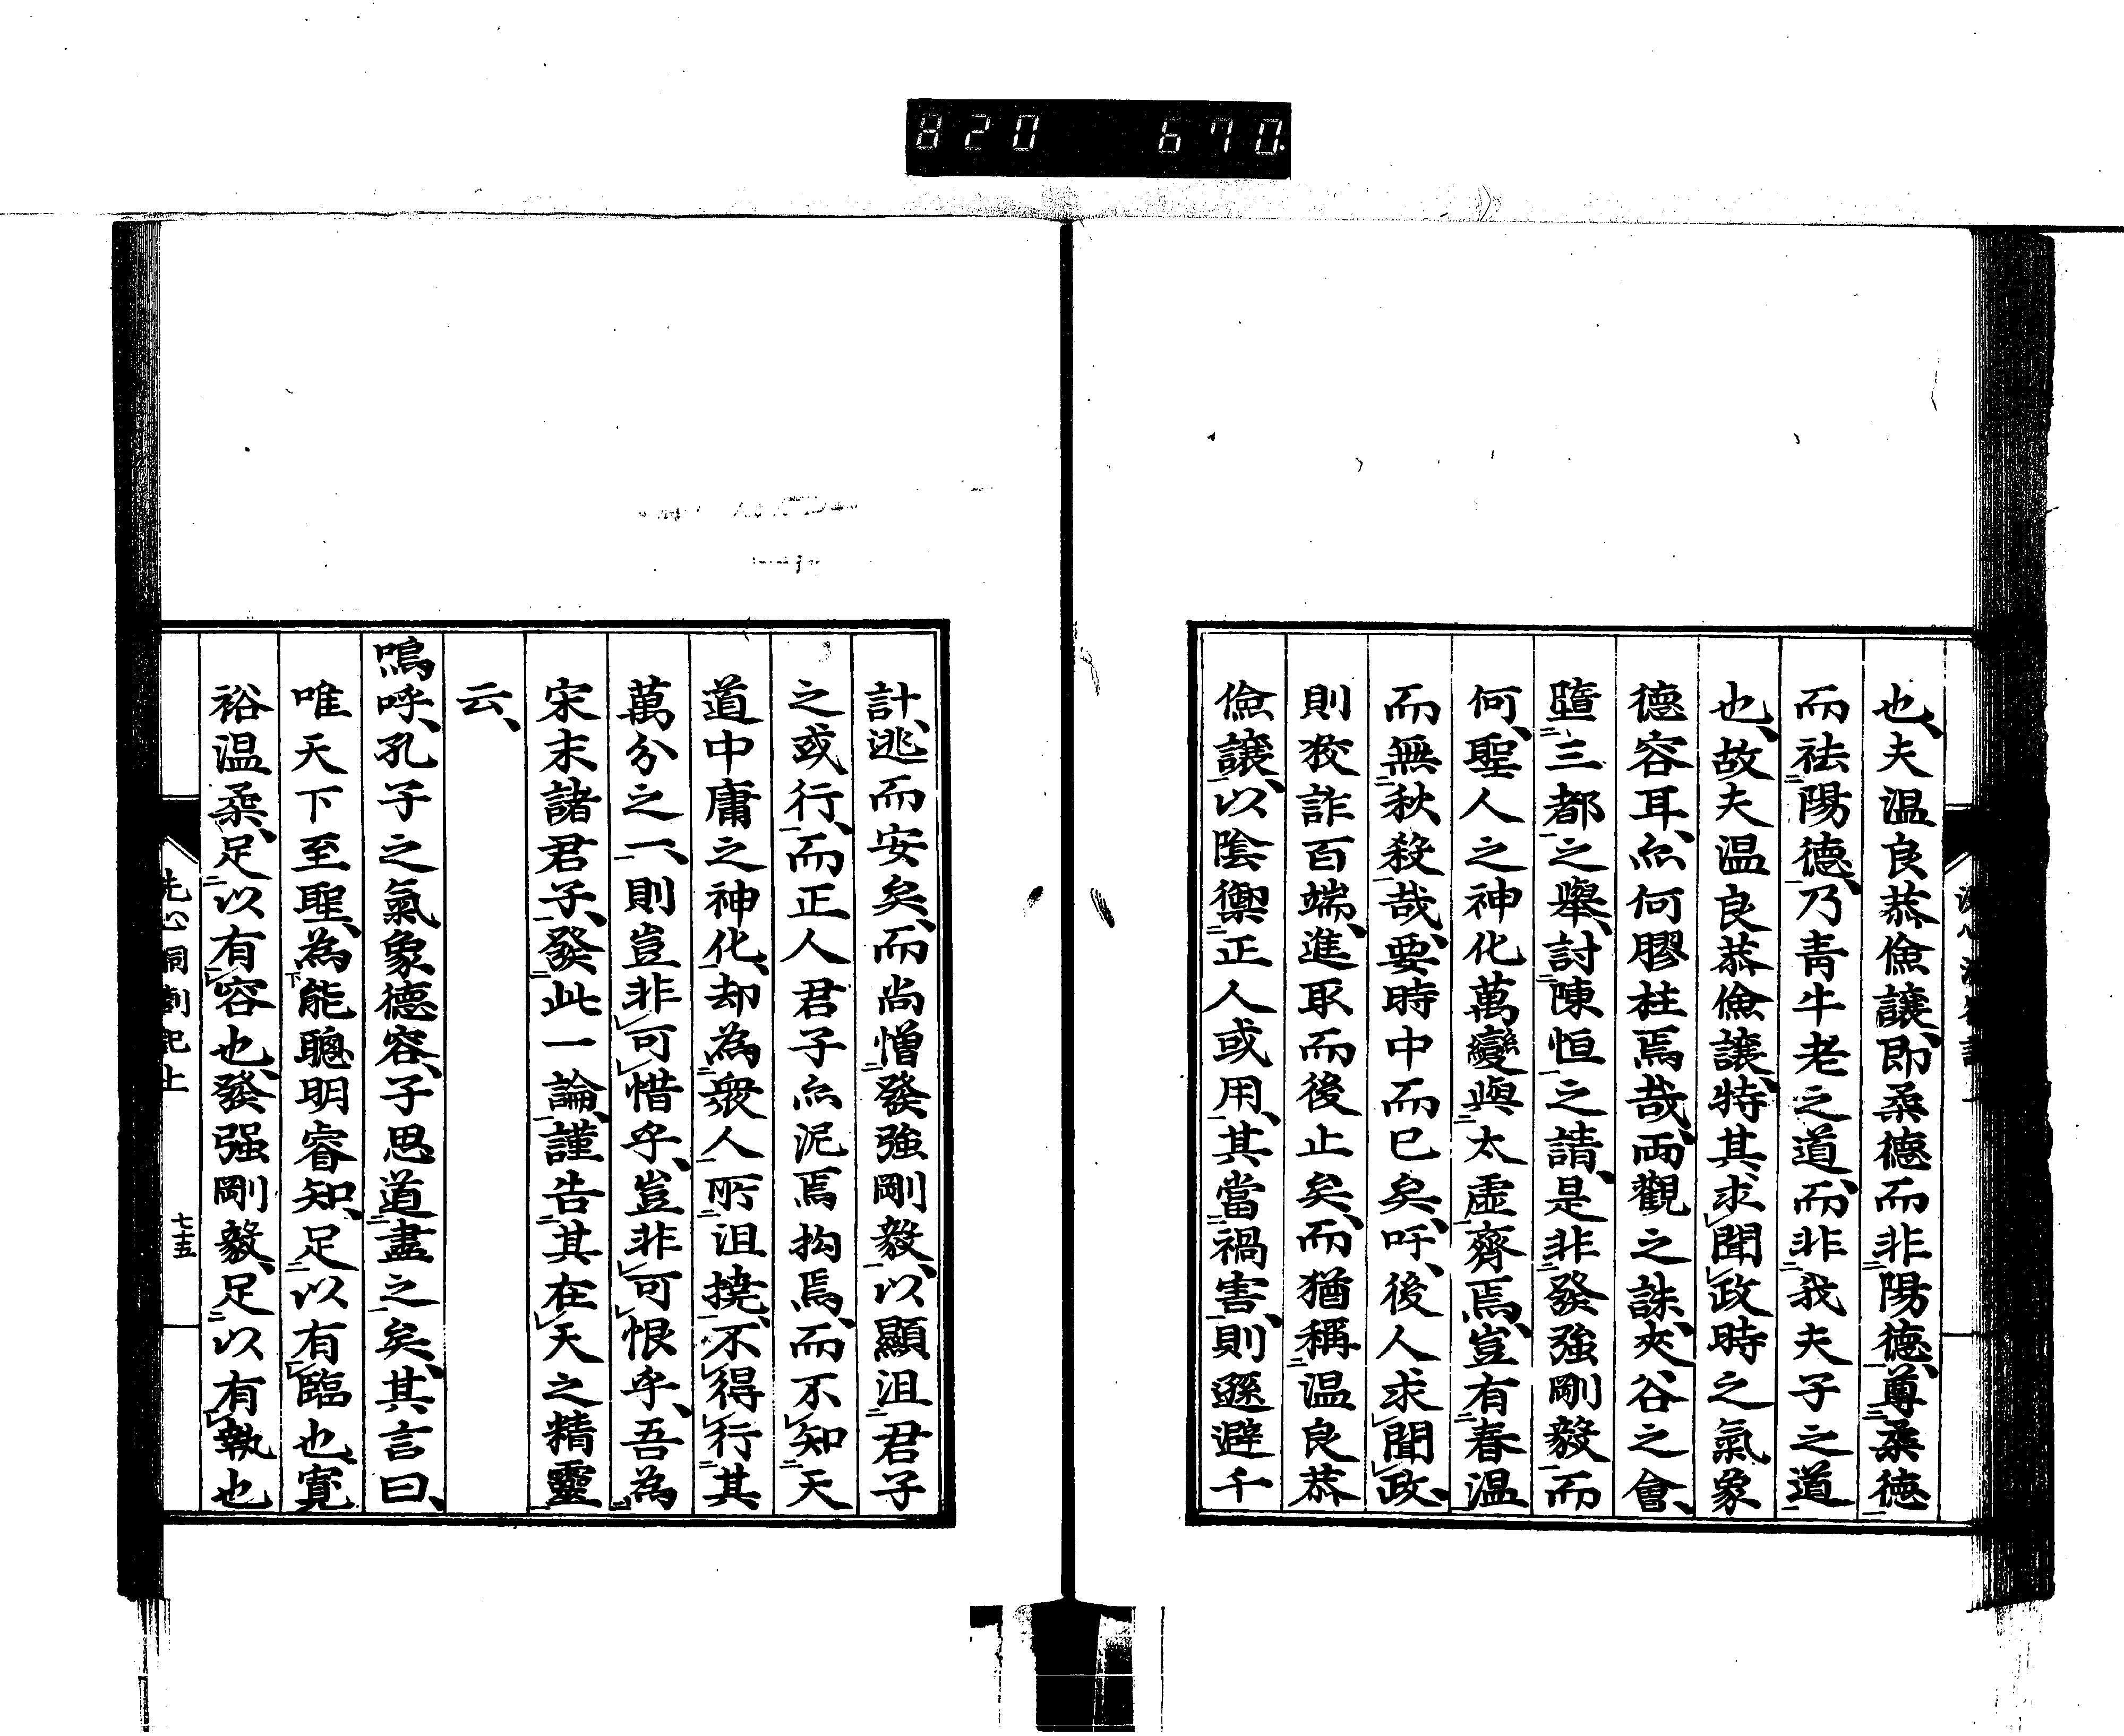 820 670
也、夫温良恭儉讓、即柔德而非陽德、尊柔德
而祛陽德、乃青牛老之道、而非我夫子之道
也、故夫温良恭儉讓、特其求聞政時之氣象
德容耳、尒何膠柱焉哉、兩觀之誅、夾谷之會、
墮三都之舉、討陳恒之請、是非發強剛毅而
何、聖人之神化萬變與太虚齊焉、豈有春温
而無秋殺哉、要時中而已矣、吁、後人求聞政、
則狡詐百端、進取而後止矣、而猶稱温良恭
儉讓、以陰禦正人或用、其當禍害、則遜避千
計、逃而安矣、而尚憎發強剛毅、以顯沮君子
之或行、而正人君子尒泥焉拘焉、而不知天
道中庸之神化、却為衆人所沮撓、不得行其
萬分之一、則豈非可惜乎、豈非可恨乎、吾為
宋末諸君子、發此一論、謹告其在天之精靈
云、
嗚呼、孔子之氣象德容、子思道盡之矣、其言曰、
唯天下至聖、為能聰明睿知、足以有臨也、寛
裕温柔、足以有容也、發强剛毅、足以有執也
洗心洞劄記上
七十五